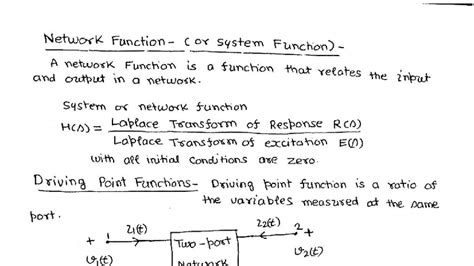 Network Function- (or System Function)-
A network Function is a function that relates the input
and output in a network.
System or network function
H(s) = Laplace Transform of Response R(s)
Laplace Transform of excitation E(s)
with all initial conditions are zero.
Driving Point Functions- Driving point function is a ratio of
the variables measured at the same
port.
+ 1 i1(t) i2(t) 2 +
v1(t) Two-port v2(t)
Network